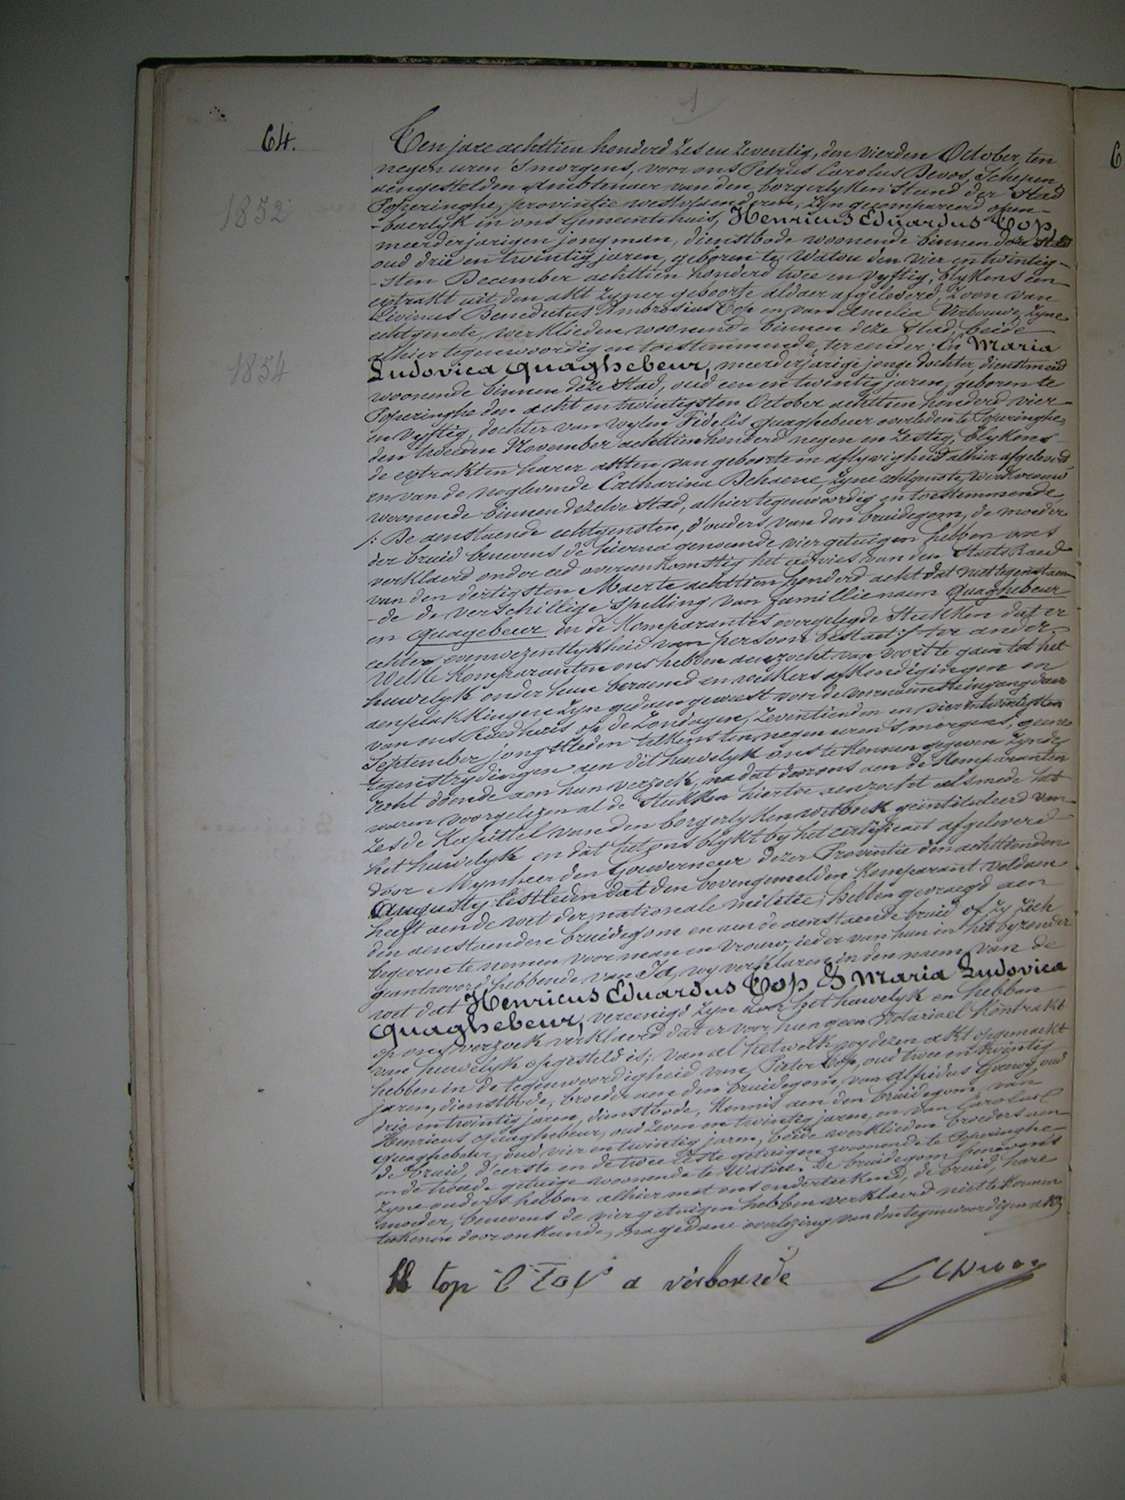 1
64.
Ten jare achttien honderd zes en zeventig, den vierden October, ten
negen uren 's morgens, voor ons Petrus Carolus Devos, Schepen
aengestelden Ambtenaer van den borgerlyken Stand der Stad
Poperinghe, provintie westvlaenderen, zyn gecompareerd open-
1852
-baerlyk in ons Gemeentehuis, Henricus Eduardus Top,
meerderjarigen jongman, dienstbode woonende binnen deze Stad
oud drie en twintig jaren, geboren te Watou den vier en twintig-
-sten December achttien honderd twee en vyftig, blykens een
extrakt uit den akt zyner geboorte aldaer afgeleverd, zoon van
Livinus Benedictus Ambrosius Top en van Amelia Verbouw, zyne
echtgenote, werklieden woonende binnen deze Stad, beide
alhier tegenwoordig en toestemmende, ter eender: En Maria
1854
Ludovica Quaghebeur, meerderjarige jonge dochter, dienstmeid
woonende binnen deze Stad, oud een en twintig jaren, geboren te
Poperinghe den acht en twintigsten October achttien honderd vier-
en vyftig, dochter van wylen Fidelis Quaghebeur overleden te Poperinghe
den tweeden November achttien honderd negen en zestig, blykens
de extrakten harer akten, van geboorte en aflyvigheid alhier afgeleverd,
en van de noglevende Catharina Dehaene, zyne echtgenote, werkvrouw
woonende binnen dezelve Stad, alhier tegenwoordig en toestemmende
/: De aenstaende echtgenoten, d'ouders van den bruidegom, de moeder
der bruid benevens de hierna genoemde vier getuigen hebben ons
verklaerd onder eed overeenkomstig het advies van den Staets Raed
van den dertigsten Maerte achttien honderd acht dat niettegenstaen-
-de de verschillige spelling van famillienaem Quaghebeur
en Quagebeur in de komparantes overgelegde stukken dat er
echter evenwezentlykheid van persoon bestaet :/ ter ander,
Welke komparanten ons hebben aenzocht van voort te gaen tot het
huwelyk onder hun beraemd en welkers afkondigingen en
aenplakkingen zyn gedaen geweest voor de voornaemste ingangdeur
van ons Raedhuis op de Zondagen, zeventienden en vier en twintigsten
September jongstleden telkens ten negen uren 's morgens; geene
tegenstrydigheden aen dit huwelyk ons te kennen gegeven zynde
recht doende aen hun verzoek, na dat door ons aen de komparanten
waren voorgelezen al de stukken hiertoe aenzocht alsmede het
zesde Kapittel van den borgerlyken wetboek geïntituleerd van
het huwelyk en dat het ons blykt by het certificaet afgeleverd
door Mynheer den Gouverneur dezer Provintie den achttienden
Augusty lestleden dat den bovengemelden komparant voldaen
heeft aen de wet der nationale militie; hebben gevraegd aen
den aenstaenden bruidegom en aen de aenstaende bruid of zy zich
begeeren te nemen voor man en vrouw, ieder van hun in het byzonder
geantwoord hebbende van Ja, wy verklaren in den naem van de
wet dat Henricus Eduardus Top & Maria Ludovica
Quaghebeur, vereenigd zyn door het huwelyk en hebben
op ons verzoek verklaerd dat er voor hun geen Notarieel kontrakt
van huwelyk opgesteld is; van al hetwelk wy dezen akt opgemaekt
hebben in de tegenwoordigheid van Pieter Top, oud twee en twintig
jaren, dienstbode, broeder aen den bruidegom, van Alfridus Gouwy, oud
drie en twintig jaren, dienstbode, kennis aen den bruidegom, van
Henricus Quaghebeur, oud zeven en twintig jaren, en van Carolus
Quaghebeur, oud vier en twintig jaren, beide werklieden broeders aen
de bruid, d'eerste en de twee leste getuigen woonende te Poperinghe
en de tweede getuige woonende te Watou. De bruidegom benevens
zyne ouders hebben alhier met ons onderteekend, de bruid, hare
moeder, benevens de vier getuigen hebben verklaerd niet te kennen
teekenen door onkunde, na gedane voorlezing van den tegenwoordigen akt.
H top L Top a verbouwde